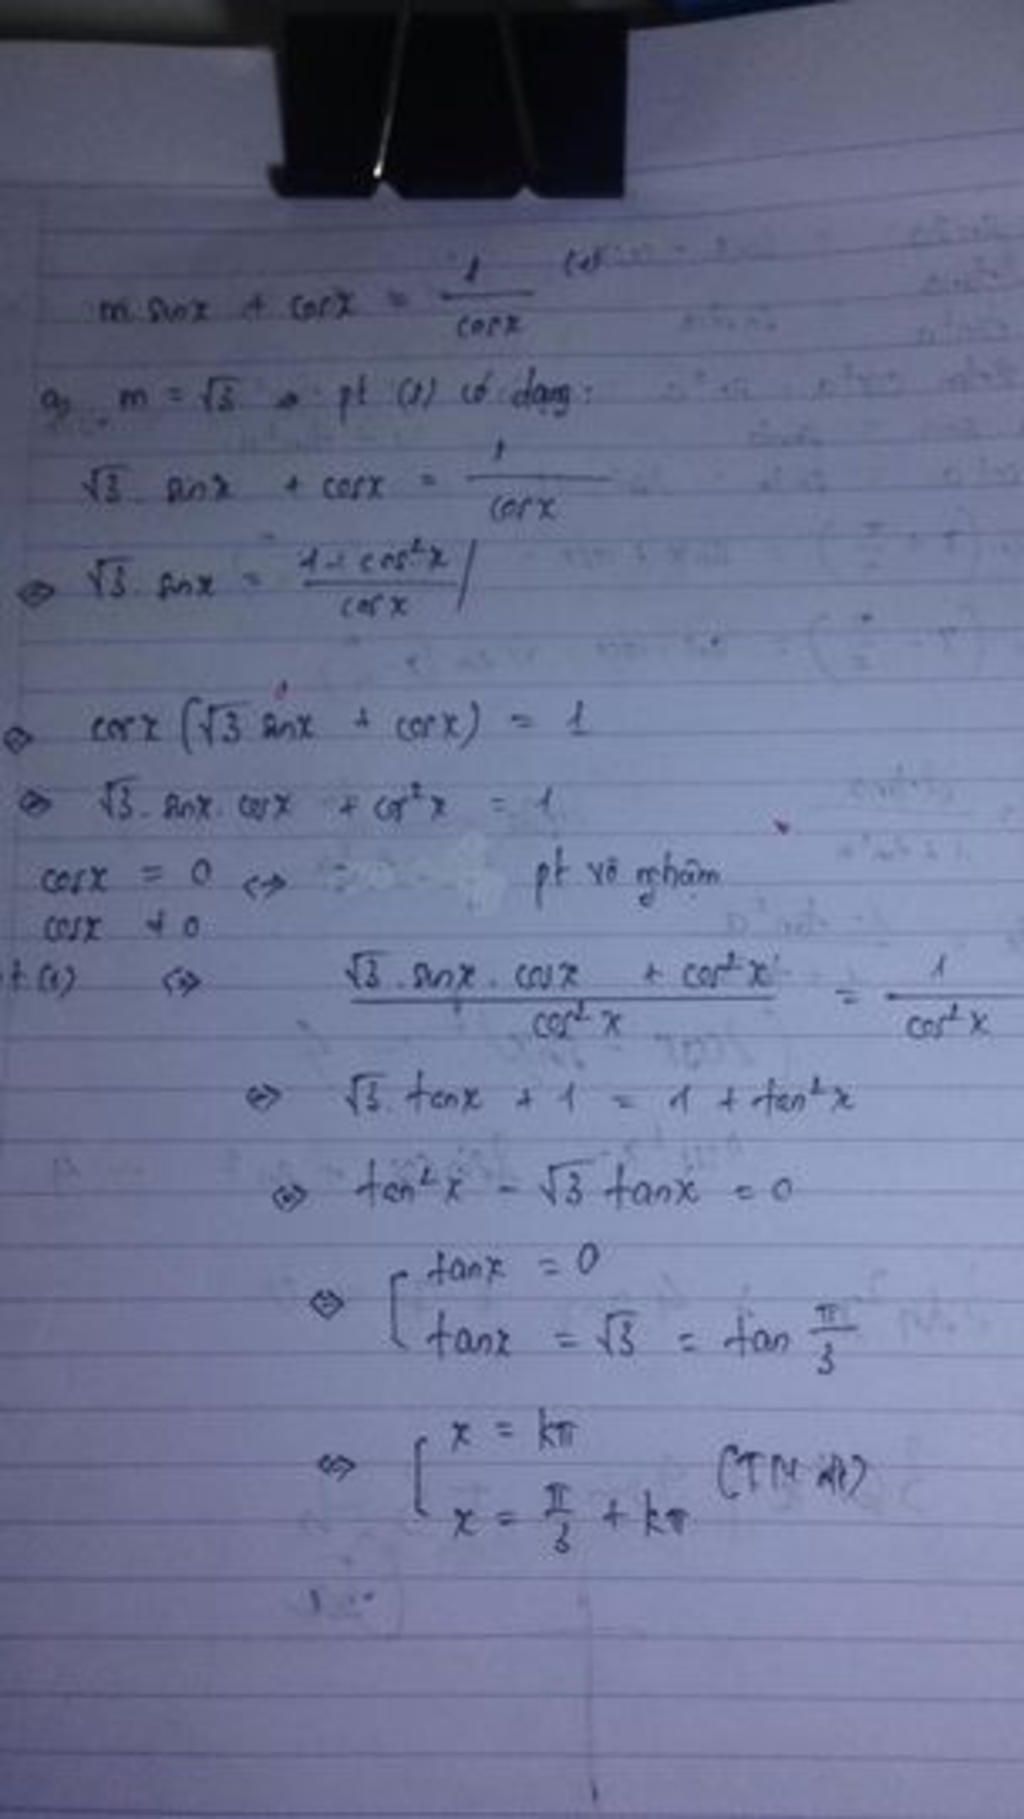 m sinx + cosx = 1/cosx (1)
a, m = √3 → pt (1) có dạng:
√3. sinx + cosx = 1/cosx
⇔ √3. sinx = (1 - cos²x)/cosx
⇔ cosx (√3 sinx + cosx) = 1
⇔ √3. sinx. cosx + cos²x = 1
cosx = 0 ⇔ pt vô nghiệm
cosx ≠ 0
pt (1) ⇔ (√3. sinx. cosx + cos²x)/cos²x = 1/cos²x
⇔ √3. tanx + 1 = 1 + tan²x
⇔ tan²x - √3 tanx = 0
⇔ [ tanx = 0
tanx = √3 = tan π/3
⇔ [ x = kπ
x = π/3 + kπ (TM đk)